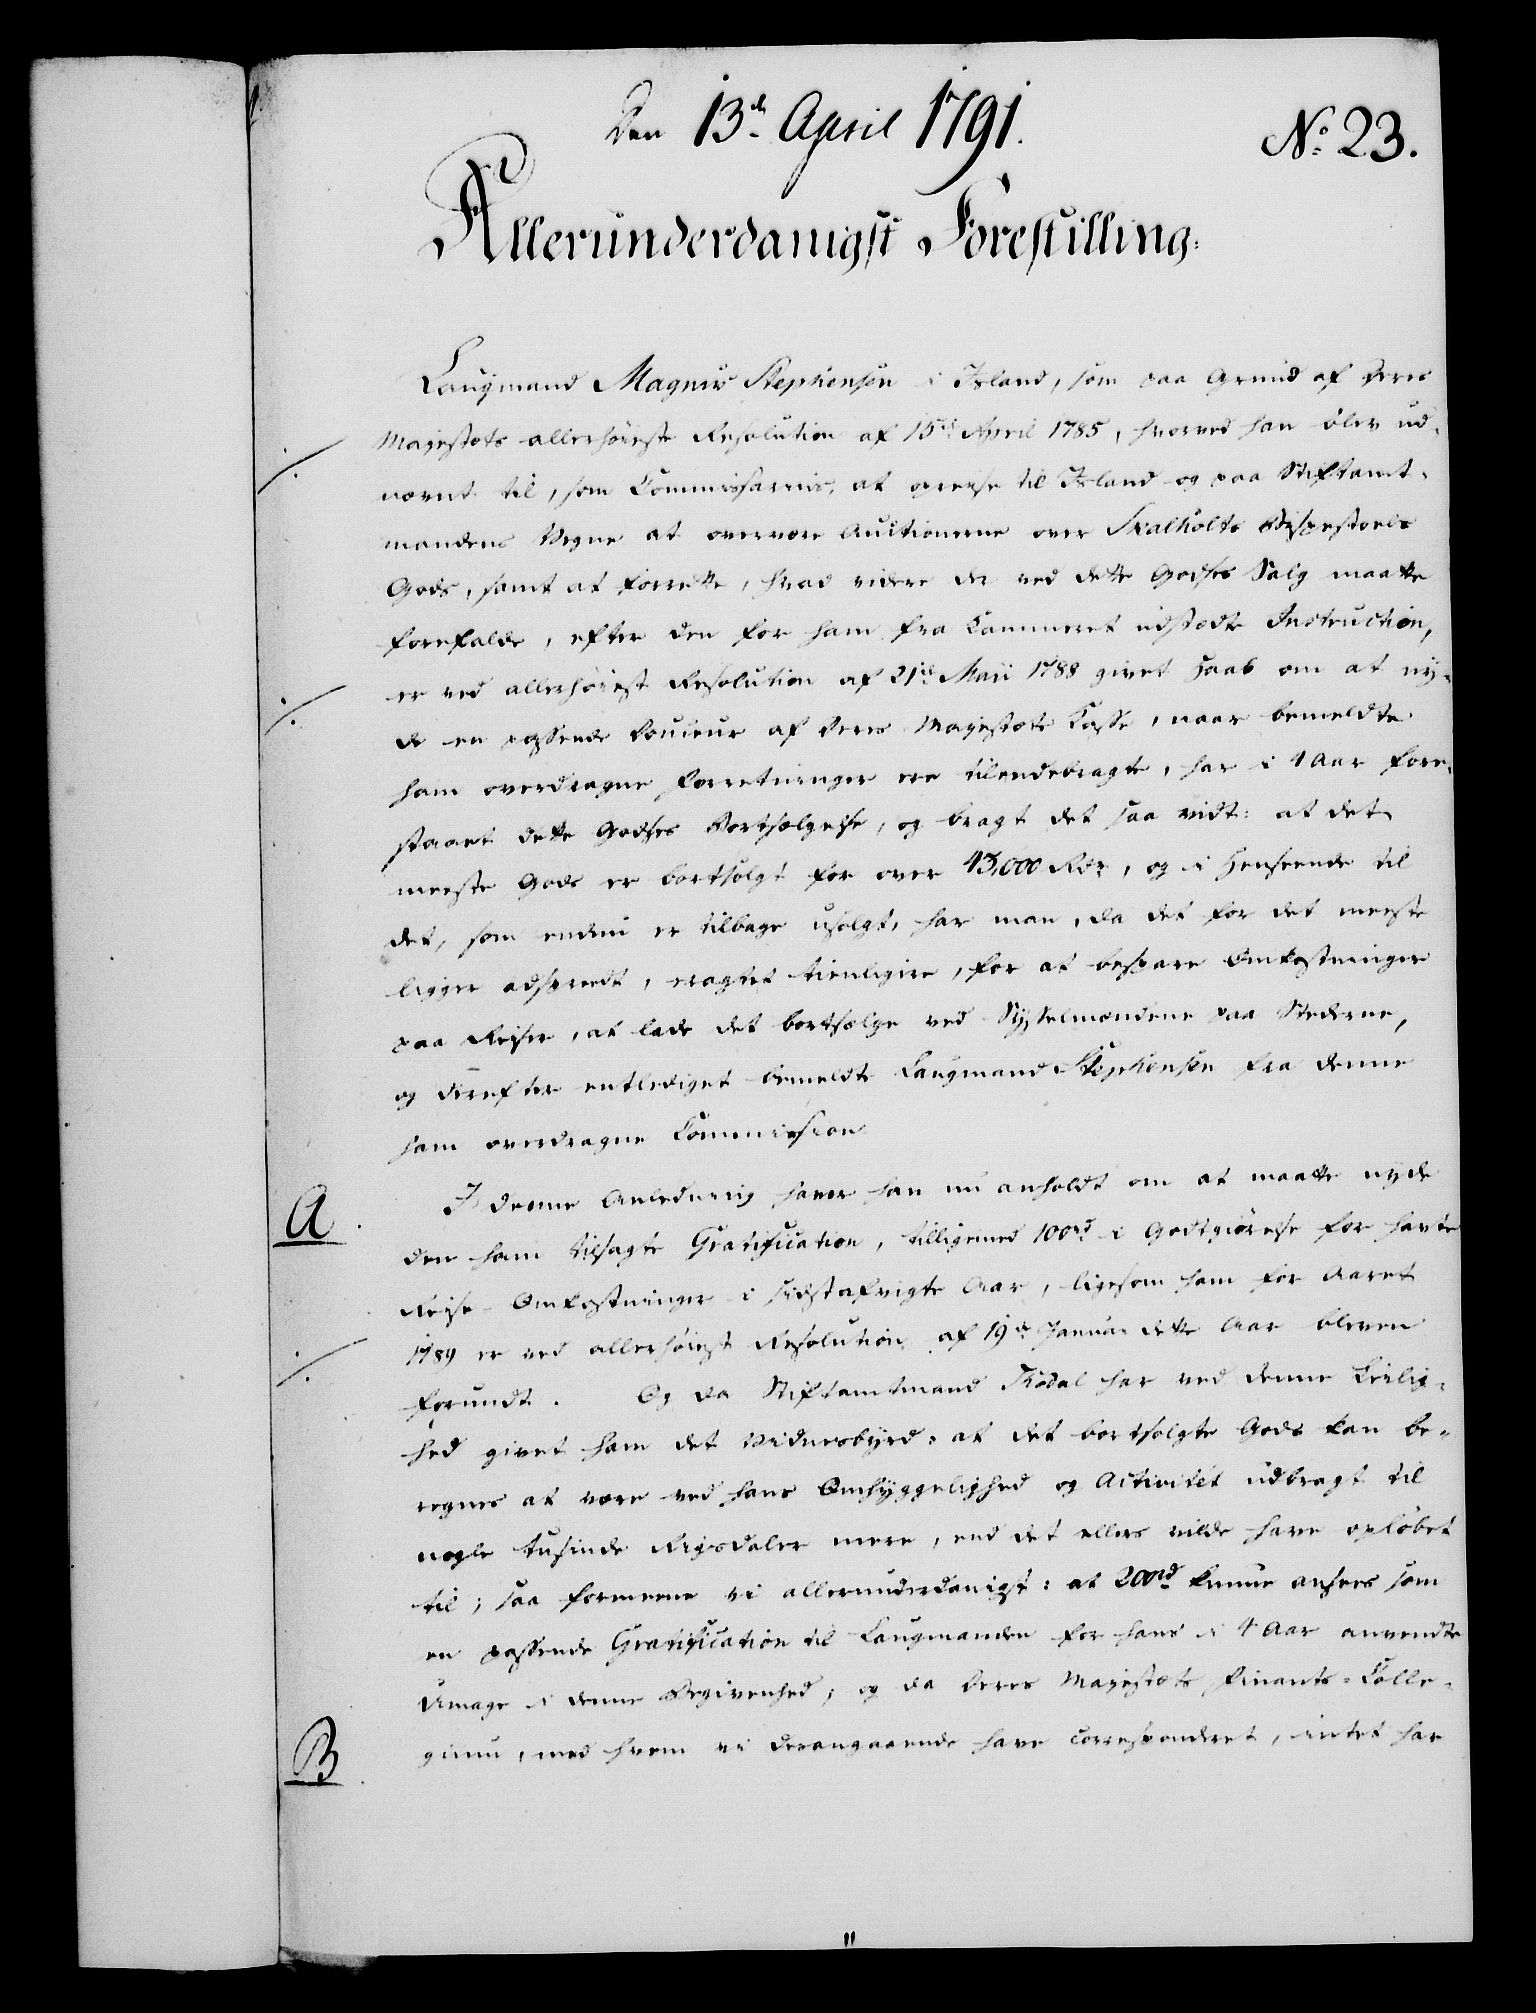 Den 13de April 1791.
No. 23.
Allerunderdanigst Forestilling:
Laugmand Magnus Stephensen i Island, som paa Grund af Deres
Majestæts allerhöieste Resolution af 15de April 1785, hvorved han blev ud-
nævnt til, som Commissarius, at opreise til Island og paa Stiftamt-
mandens Vegne at overvære Auctionerne over Skalholts Bispestoels
Gods, samt at forrette, hvad videre der ved dette Godses Salg maatte
forefalde, efter den for ham fra Cammeret udstædte Instruction,
er ved allerhöiest Resolution af 21de Maii 1788 givet Haab om at ny-
de en passende Douceur af Deres Majestæts Casse, naar bemeldte
ham overdragne Forretninger ere tilendebragte, har i 4 Aar fore-
staaet dette Godses Bortsælgelse, og bragt det saa vidt: at det
meeste Gods er bortsolgt for over 43,000 Rdr, og i Henseende til
det, som endnu er tilbage usolgt, har man, da det for det meeste
ligger adspredt, eragtet tienligere, for at bespare Omkostninger
paa Reiser, at lade det bortsælge ved Sysselmændene paa Stederne,
og derefter entlediget bemeldte Laugmand Stephensen fra denne
ham overdragne Commission.
A.
I denne Anledning haver han nu anholdt om at maatte nyde
den ham tilsagte Gratification, tilligemed 100rd i Godtgiörelse for havte
Reise-Omkostninger i sidstafvigte Aar, ligesom ham for Aaret
1789 er ved allerhöiest Resolution af 19de Januar dette Aar bleven
forundt. Og da Stiftamtmand Thodal har ved denne Leilig-
hed givet ham det Vidnesbyrd: at det bortsolgte Gods kan be-
regnes at være ved hans Omhyggelighed og Activitet udbragt til
nogle tusinde Rigsdaler mere, end det ellers vilde have oplöbet
til; saa formene vi allerunderdanigst: at 200rd kunne ansees som
en passende Gratification til Laugmanden for hans i 4 Aar anvendte
Umage i denne Begivenhed; og da Deres Majestæts Finants-Colle-
B.
gium, med hvem vi derangaaende have corresponderet, intet har